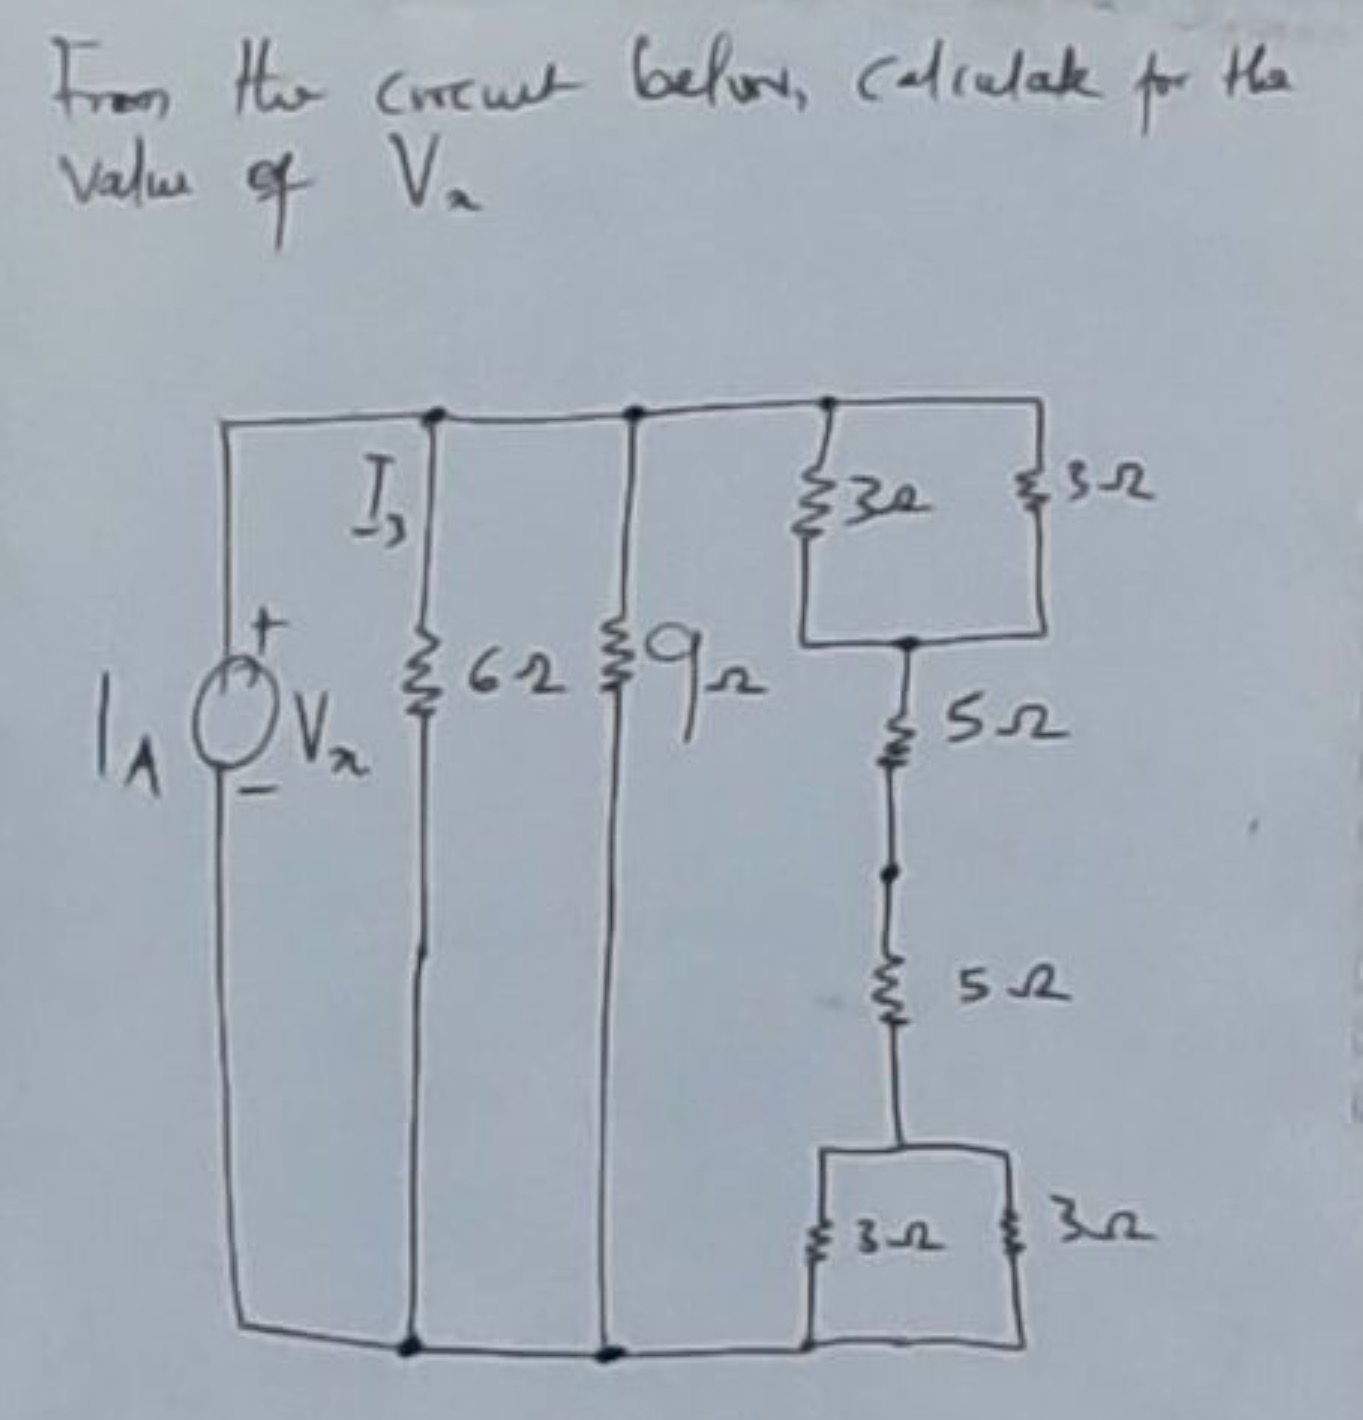 From the circuit below, calculate for the
value of Vx
I3
3Ω
3Ω
+
6Ω
9Ω
1A
Vx
5Ω
-
5Ω
3Ω
3Ω